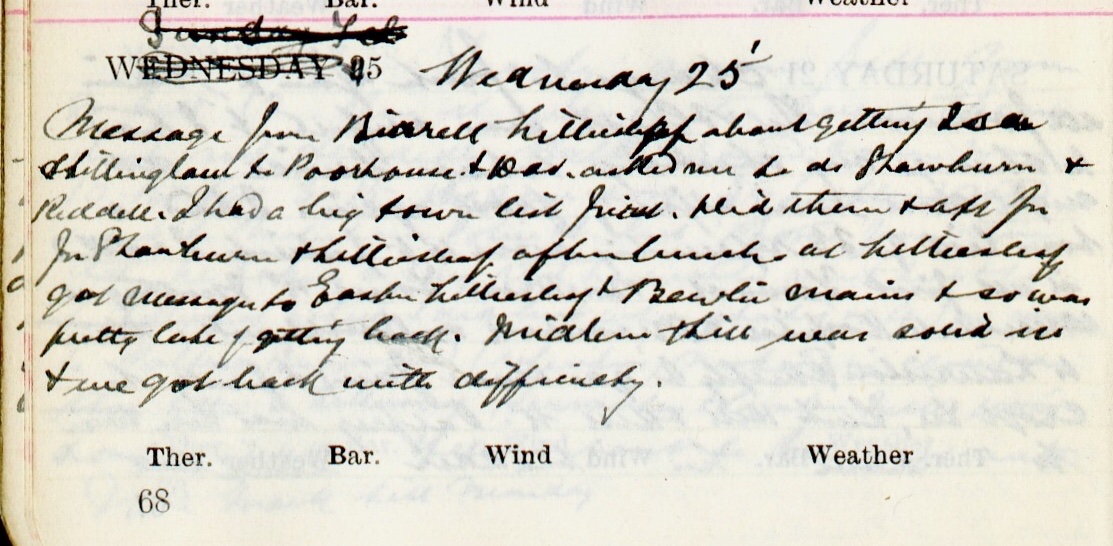 Ther. Bar. Wind Weather
Sunday Feb
WEDNESDAY 25 Wednesday 25
Message from Birrell about getting
to Poorhouse & Dav. asked me to do Shawburn &
Riddell. I had a big town list first. Did them & off for
for Shawburn & after lunch. at
got message to Easter & Bewlie mains & so was
pretty late of getting back. hill was solid ice
& we got back with difficulty.
Ther. Bar. Wind Weather
68